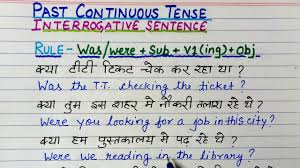 PAST CONTINUOUS TENSE
INTERROGATIVE SENTENCE
RULE- Was/were + Sub + V1(ing) + obj
क्या टीटी टिकट चेक कर रहा था ?
Was the T.T. checking the ticket ?
क्या तुम इस शहर मे नौकरी तलाश रहे थे ?
Were you looking for a job in this city?
क्या हम पुस्तकालय मे पढ़ रहे थे ?
Were we reading in the library ?